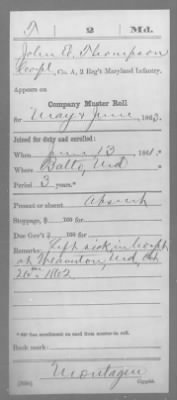 T 2 Md.
John E. Thompson
Corpl., Co. A, 2 Reg't Maryland Infantry.
Appears on
Company Muster Roll
for May & June, 1863.
Joined for duty and enrolled:
When June 13 1861.
Where Balto, Md
Period 3 years.*
Present or absent Absent
Stoppage, $ 100 for
Due Gov't $ 100 for
Remarks: Left sick in hosp'l
at Md, Oct
26th 1862
Book mark:
Montague
(858c) Copyist.